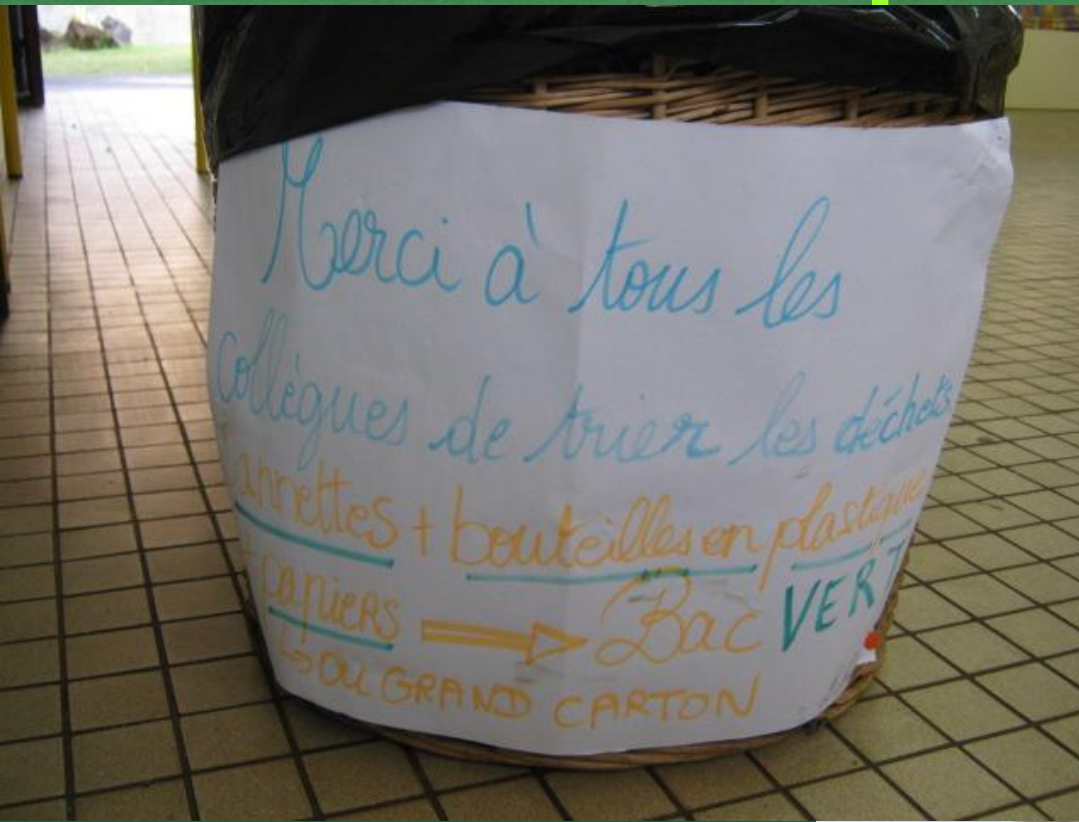 Merci à tous les
collègues de trier les déchets
cannettes + bouteilles en plastique
+ papiers ⟹ Bac VERT
↳ OU GRAND CARTON